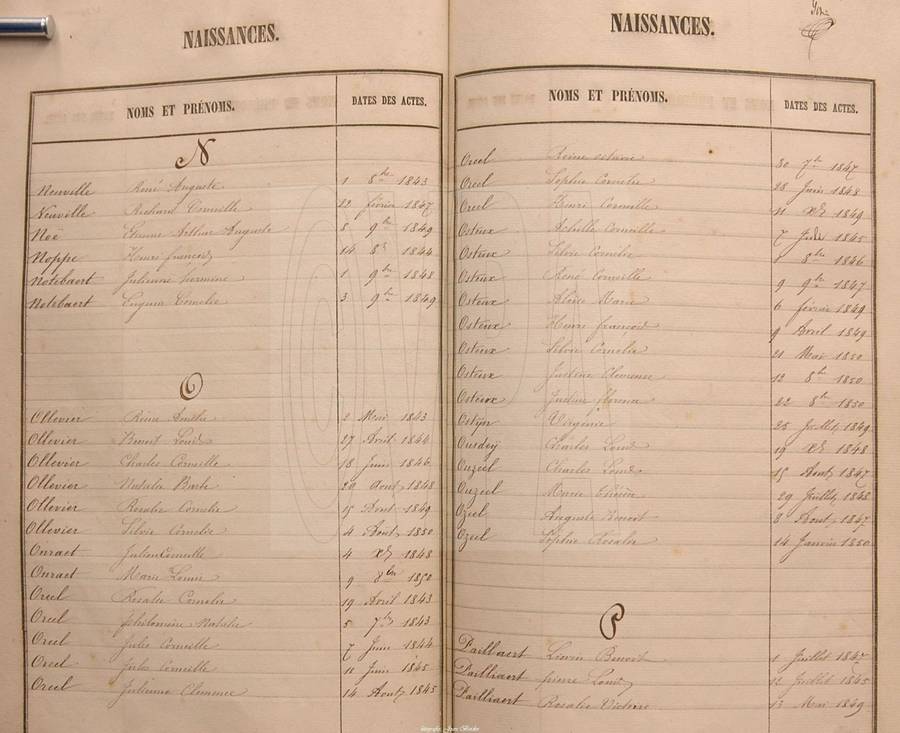 NAISSANCES.
NOMS ET PRÉNOMS. DATES DES ACTES.
N
Neuville René Auguste 1 8bre 1843
Neuville Richard Corneille 22 février 1847
Noë Etienne Arthur Auguste 8 9bre 1849
Noppe Henri françois 14 8re 1844
Notebaert Julienne hermine 1 9bre 1848
Notebaert Eugénie Cornelie 3 9bre 1849
O
Ollevier Reine Amélie 2 Mai 1843
Ollevier Benoit Louis 27 Avril 1844
Ollevier Charles Corneille 18 Juin 1846
Ollevier Natalie Barbe 29 Aout 1848
Ollevier Rosalie Cornelie 15 1849
Ollevier Silvie Cornelie 4 Aout 1850
Onraet Julien Corneille 4 xbre 1848
Onraet Marie Louise 9 8bre 1850
Oreel Rosalie Cornelie 19 Avril 1843
Oreel Philomène Natalie 5 7bre 1843
Oreel Jules Corneille 7 Juin 1844
Oreel Jules Corneille 11 Juin 1845
Oreel Julienne Clemence 14 Aout 1845
NAISSANCES.
NOMS ET PRÉNOMS. DATES DES ACTES.
Oreel Reine octavie 30 7bre 1847
Oreel Sophie Cornelie 28 Juin 1848
Oreel Henri Corneille 11 xbre 1849
Osteux Achille Corneille 7 1845
Osteux Silvie Cornélie 1 8bre 1846
Osteux René Corneille 9 9bre 1847
Osteux Marie 6 février 1849
Osteux Henri francois 9 Avril 1849
Osteux Silvie Cornelie 21 Mai 1850
Osteux Justine Clemence 12 8bre 1850
Osteux Justine florence 22 8bre 1850
Ostyn Virginie 25 Juillet 1849
Ousdeÿ Charles Louis 19 xbre 1848
Ouzeel Charles Louis 15 Aout 1847
Ouzeel Marie 29 Juillet 1848
Ozeel Auguste Benoit 8 Aout 1847
Ozeel Sophie Rosalie 14 Janvier 1850
P
Pailliaert Lievin Benoit 1 Juillet
Pailliaert pierre Louis 12 Juillet 1845
Pailliaert Rosalie Victoire 13 Mai 1849